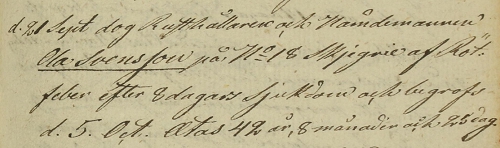 d. 28 Sept dog Rusthållaren och Nämdemannen
Ola Svensson på No 18 Skjegrie af Röt-
feber efter 8 dagars sjukdom och begrofs
d. 5. Oct. Ætas 42 år, 8 månader och 23 dag